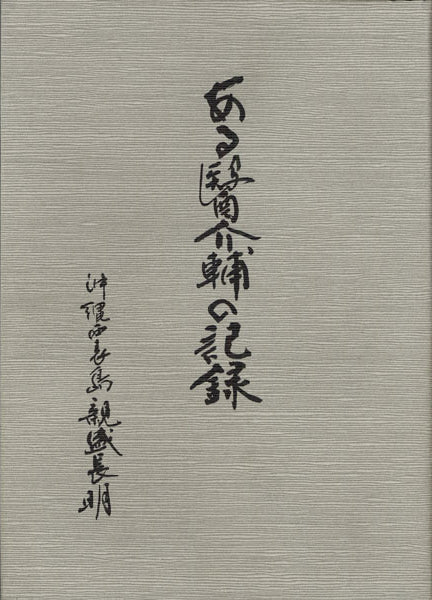 ある醫介輔の記録
沖縄西表島 親盛長明